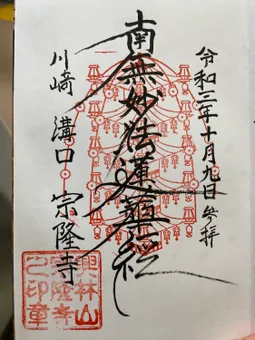 令和三年十月九日参拝
南無妙法蓮華経
川崎 溝口 宗隆寺
興林山
宗隆寺
之印章